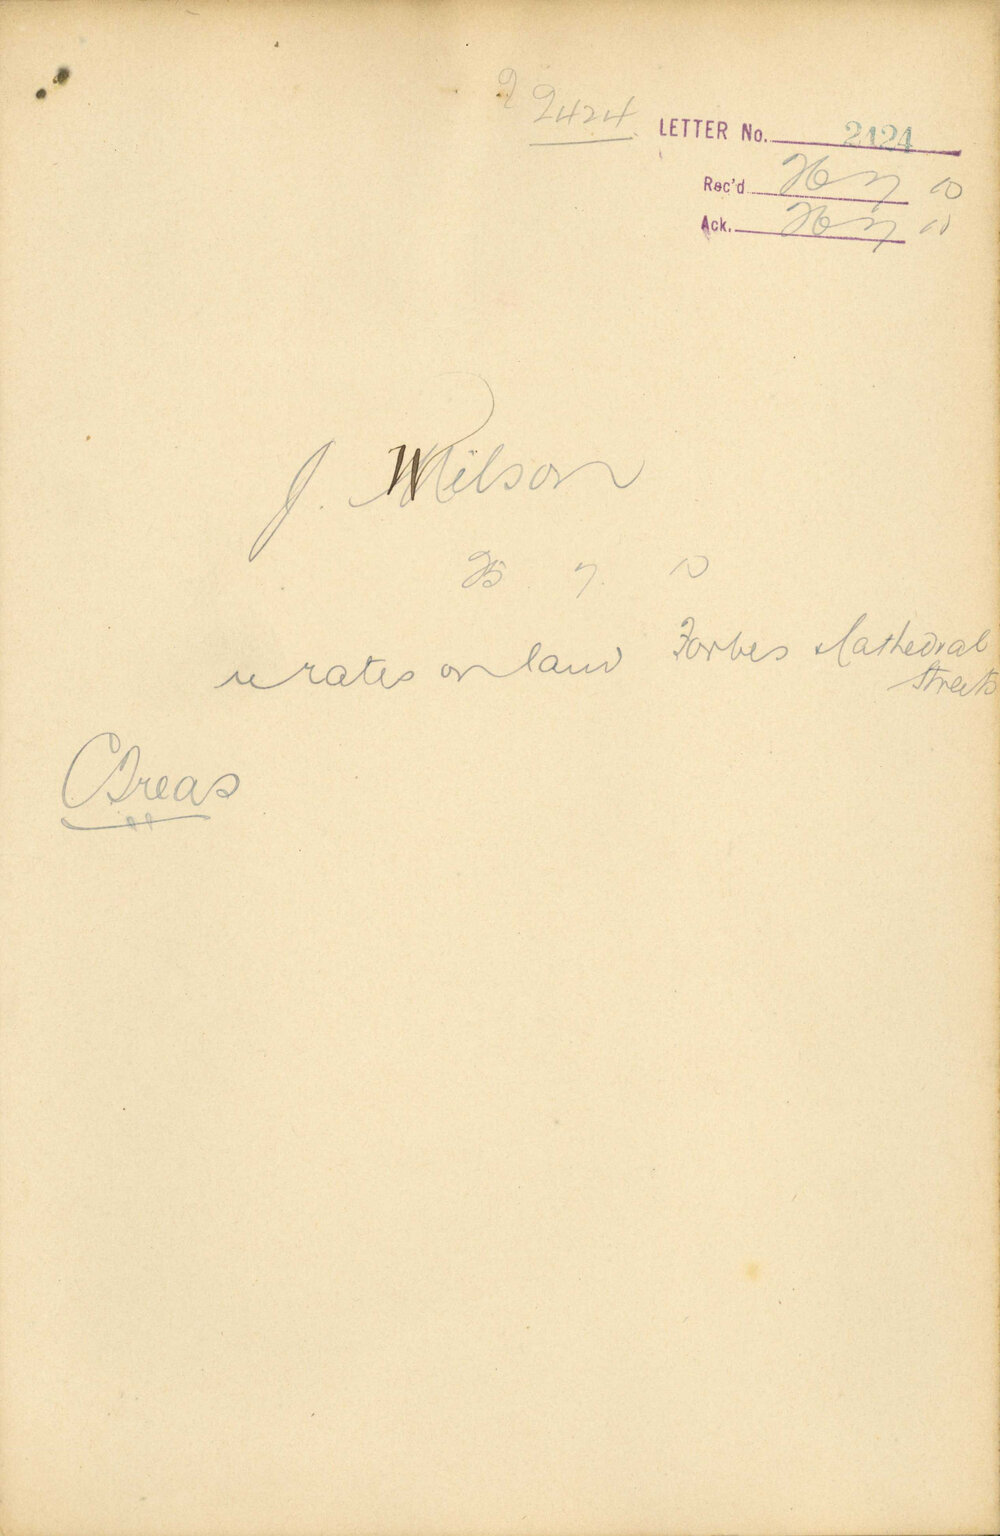 2424
LETTER No. 2424
Rec'd 26 7 10
Ack. 26 7 10
J. Wilson
25 7. 10
re rates on land Forbes & Cathedral
Streets
C Treas